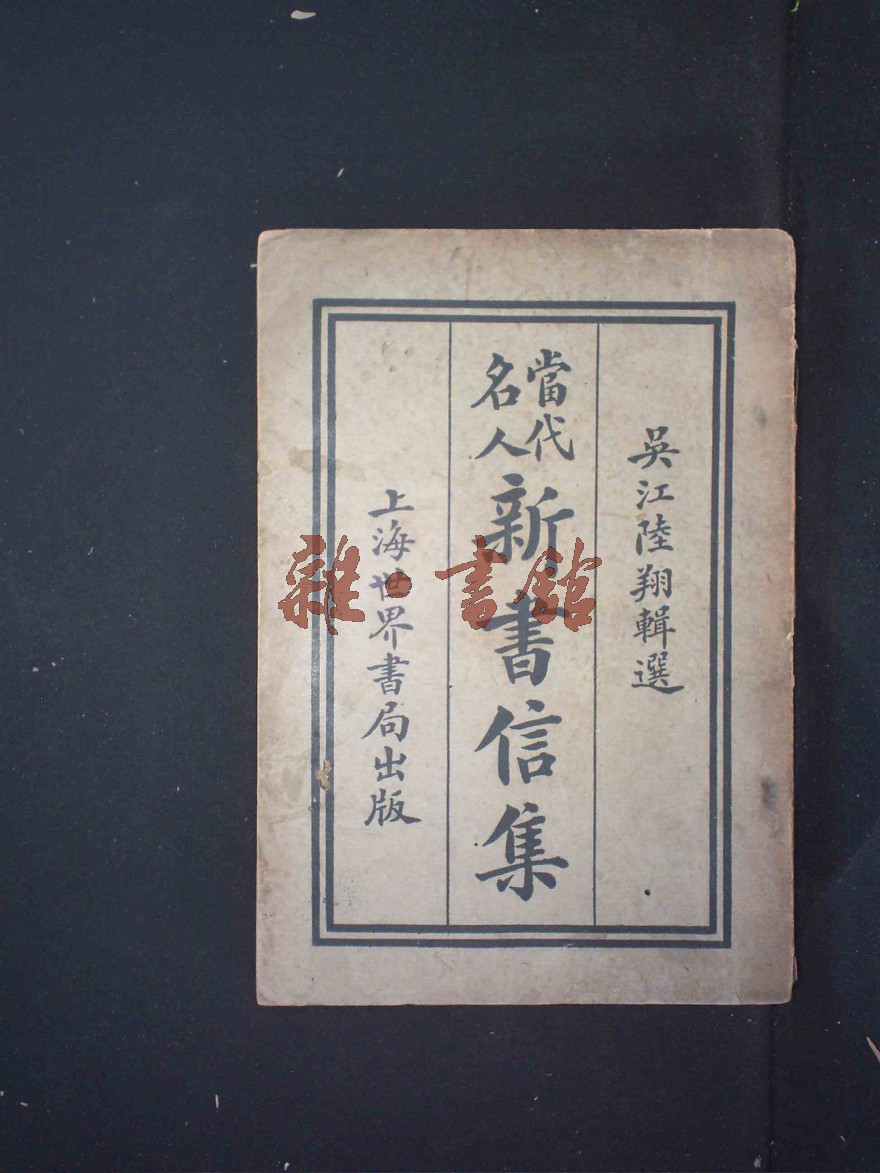 吳江陸翔輯選
當代
名人
新書信集
上海世界書局出版
雜·書館